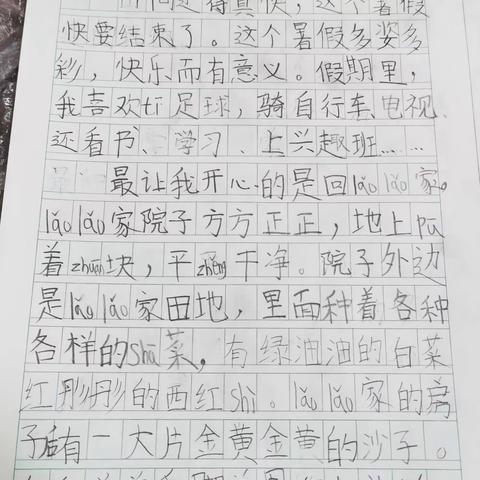 间过得真快，这个暑假
快要结束了。这个暑假多姿多
彩，快乐而有意义。假期里，
我喜欢tī足球，骑自行车、电视、
还看书、学习、上兴趣班……
最让我开心的是回lǎo lǎo家。
lǎo lǎo家院子方方正正，地上pū
着zhuān块，平zhěng干净。院子外边
是lǎo lǎo家田地，里面种着各种
各样的shū菜，有绿油油的白菜
红彤彤的西红shì。lǎo lǎo家的房
子后有一大片金黄金黄的沙子。